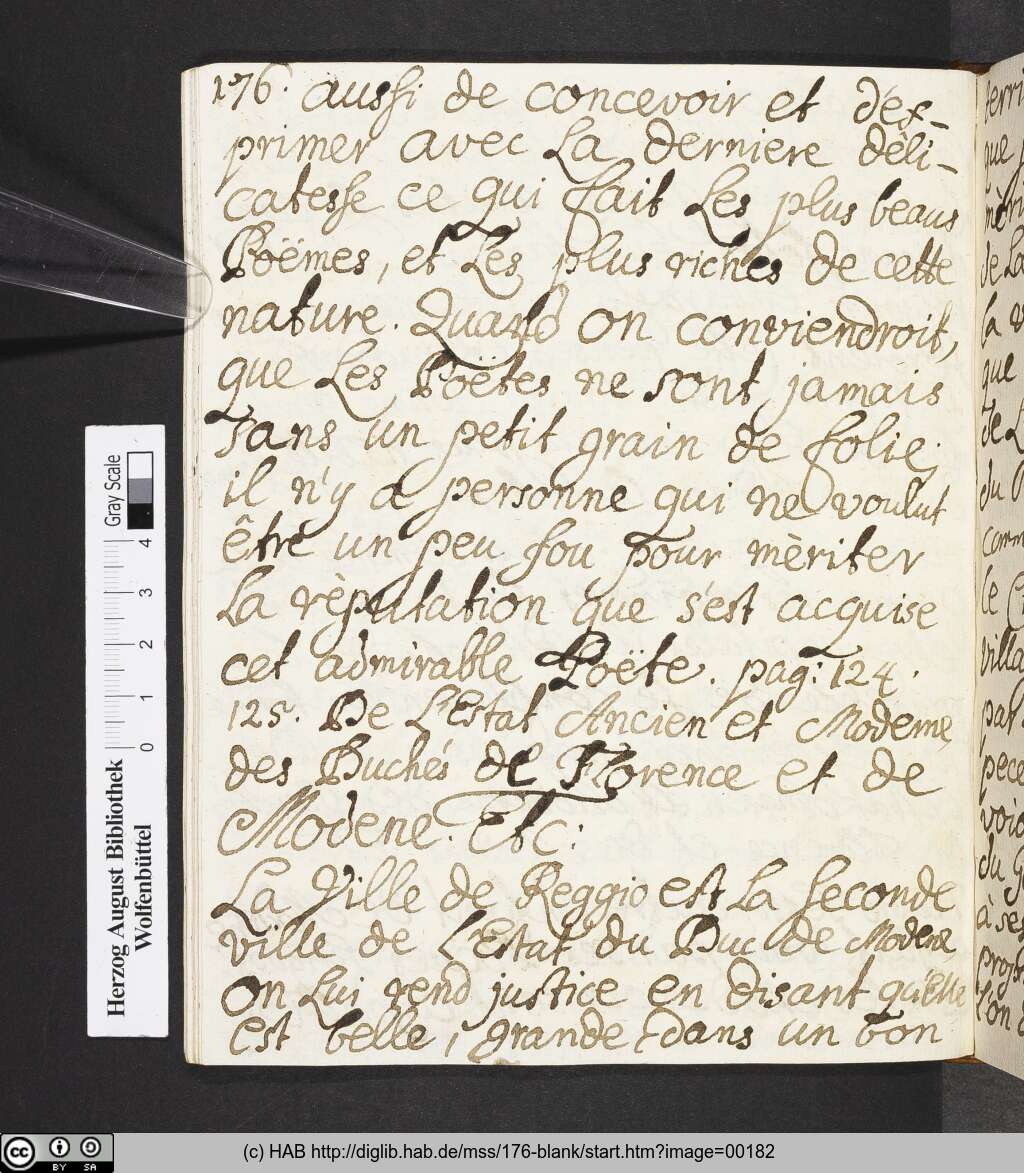 176. aussi de concevoir et d'ex-
primer avec La derniere dèli-
catesse ce qui fait Les plus beaus
Poëmes, et Les plus riches de cette
nature. Quand on conviendroit,
que Les Poëtes ne sont jamais
sans un petit grain de folie;
il n'y a personne qui ne voulut
être un peu fou pour mèriter
La rèputation que s'est acquise
cet admirable Poëte. pag: 124.
125. De L'Estat Ancien et Moderne
des Duchés de Florence et de
Modene. Etc:
La Ville de Reggio est La seconde
ville de L'Estat du Duc de Modene
on Lui rend justice en disant qu'Elle
est belle, grande dans un bon
Herzog August Bibliothek
Wolfenbüttel
Gray Scale
0 1 2 3 4
cc BY SA
(c) HAB http://diglib.hab.de/mss/176-blank/start.htm?image=00182